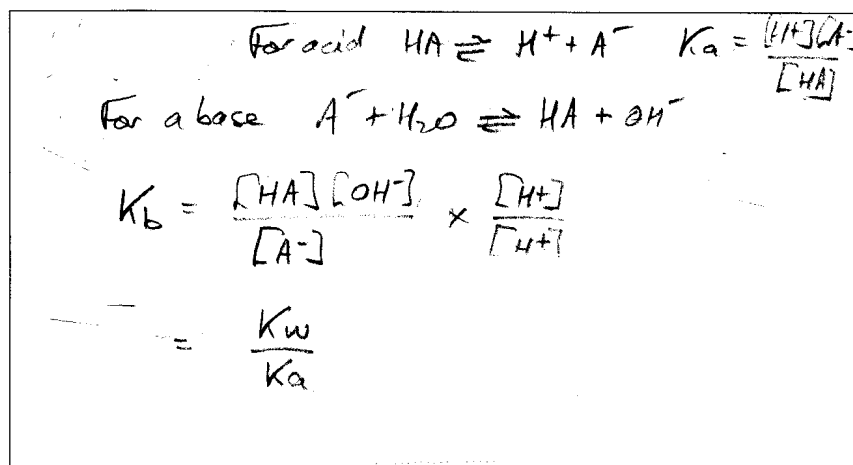 For acid HA ⇌ H⁺ + A⁻ Ka = [H+][A-] / [HA]
For a base A⁻ + H₂O ⇌ HA + OH⁻
Kb = [HA][OH⁻] / [A-] × [H+] / [H+]
= Kw / Ka